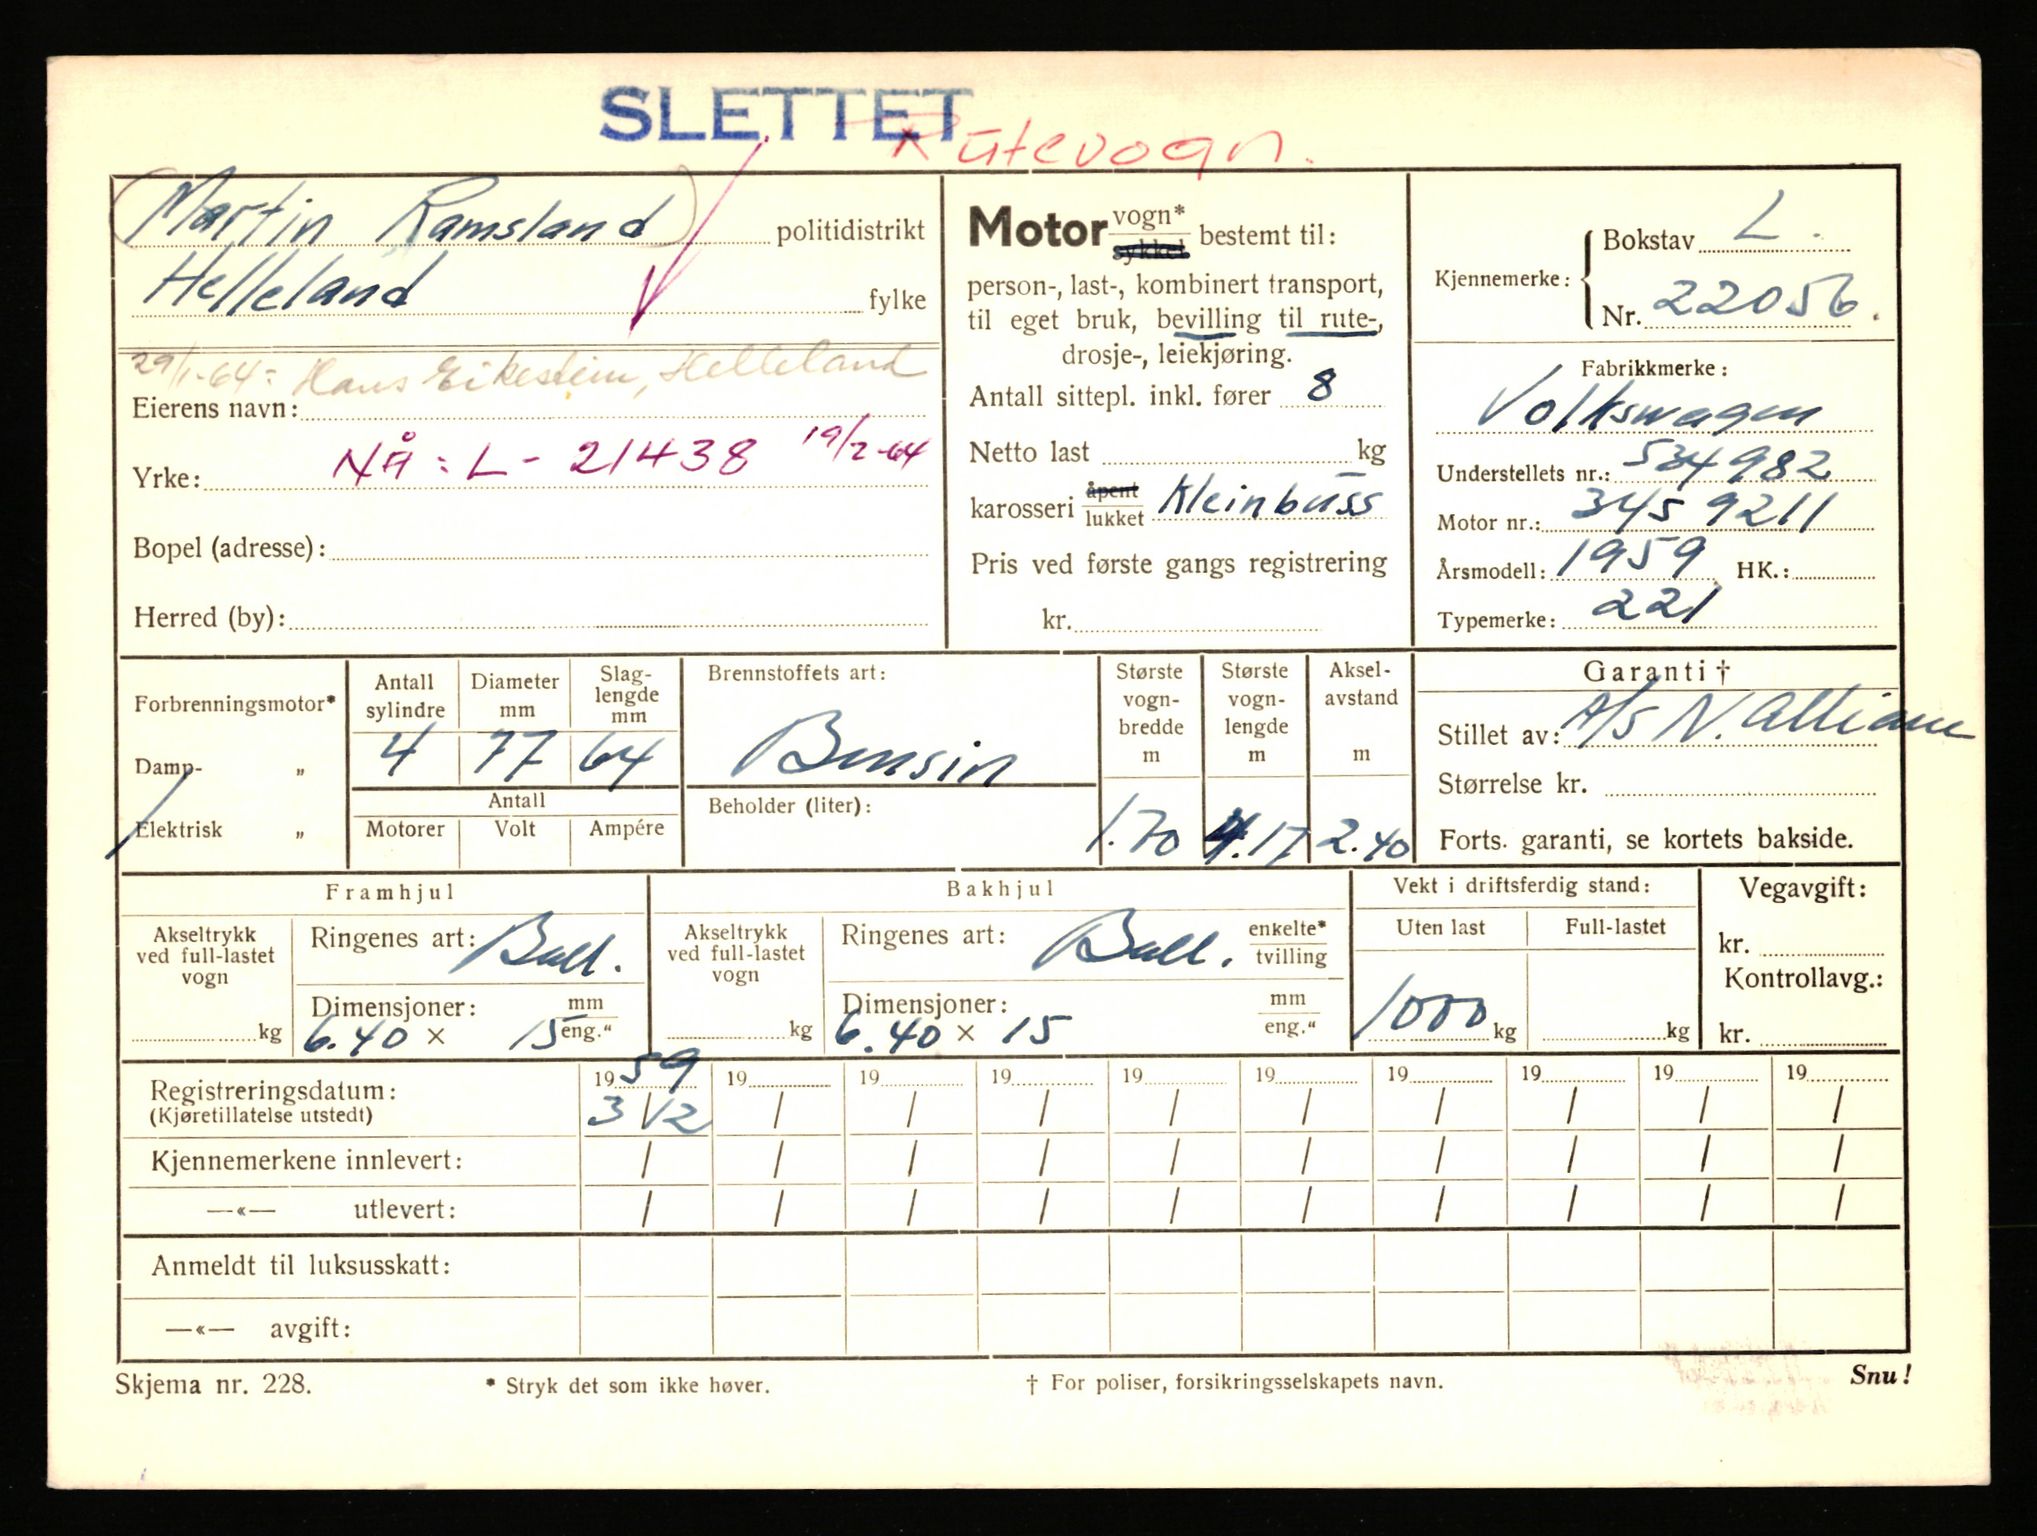 SLETTET
Rutevogn.
Martin Ramsland politidistrikt
Helleland fylke
29/1-64: Hans Eikestein, Helleland
Eierens navn:
Yrke: NÅ: L- 21438 19/2-64
Bopel (adresse):
Herred (by):
Motor vogn* sykkel bestemt til:
person-, last-, kombinert transport,
til eget bruk, bevilling til rute-,
drosje-, leiekjøring.
Antall sittepl. inkl. fører 8
Netto last kg
karosseri åpent lukket Kleinbuss
Pris ved første gangs registrering
kr.
Kjennemerke: Bokstav L.
Nr. 22056.
Fabrikkmerke:
Volkswagen
Understellets nr.: 534982
Motor nr.: 3459211
Årsmodell: 1959 HK.:
Typemerke: 221
Forbrenningsmotor*
Damp- „
Elektrisk „
Antall sylindre
Diameter mm
Slag-lengde mm
4 77 64
Antall
Motorer Volt Ampére
Brennstoffets art:
Bensin
Beholder (liter):
Største vogn-bredde m
1.70
Største vogn-lengde m
4.17
Aksel-avstand m
2.40
Garanti †
Stillet av: A/S N. Alliance
Størrelse kr.
Forts. garanti, se kortets bakside.
Framhjul
Akseltrykk ved full-lastet vogn
kg
Ringenes art: Ball.
Dimensjoner: mm
6.40 × 15 eng.“
Bakhjul
Akseltrykk ved full-lastet vogn
kg
Ringenes art: Ball. enkelte* tvilling
Dimensjoner: mm
6.40 × 15 eng.“
Vekt i driftsferdig stand:
Uten last Full-lastet
1000 kg kg
Vegavgift:
kr.
Kontrollavg.:
kr.
Registreringsdatum: 1959 19 19 19 19 19 19 19 19 19
(Kjøretillatelse utstedt) 3/12 / / / / / / / / /
Kjennemerkene innlevert: / / / / / / / / / /
—«— utlevert: / / / / / / / / / /
Anmeldt til luksusskatt:
—«— avgift:
Skjema nr. 228. * Stryk det som ikke høver. † For poliser, forsikringsselskapets navn. Snu!